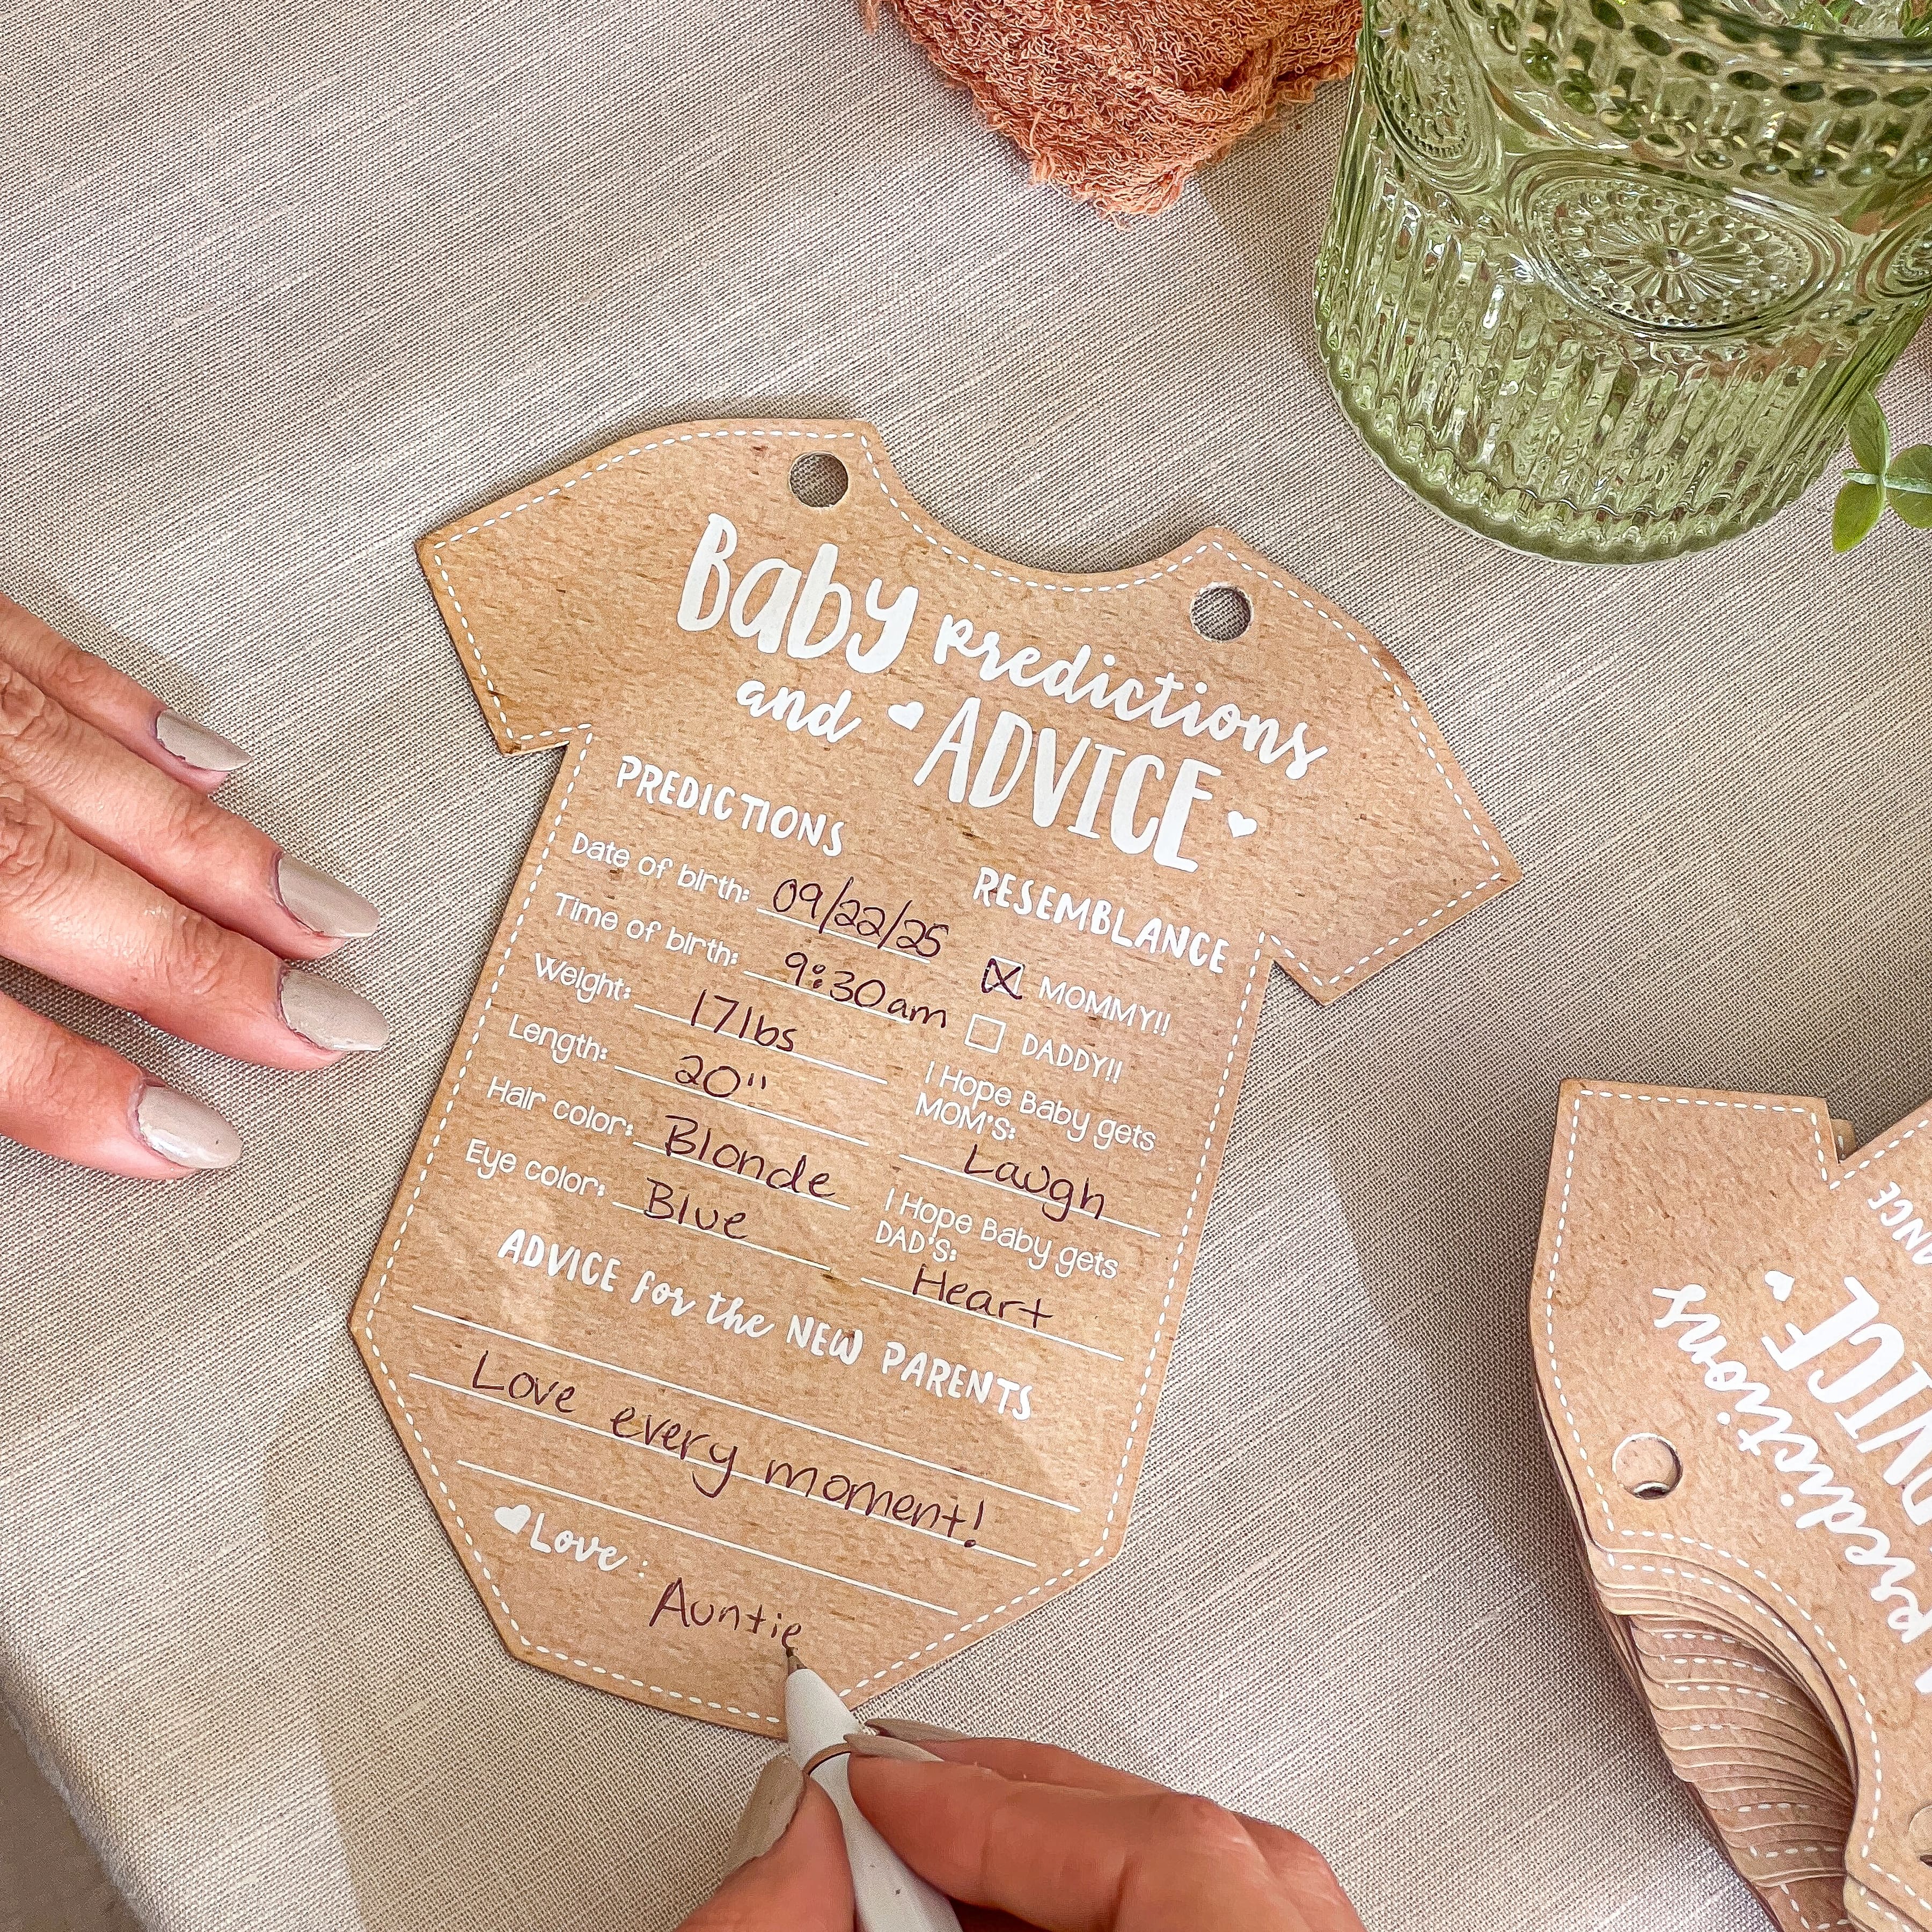 Baby predictions
and ADVICE
PREDICTIONS
Date of birth: 09/22/25
Time of birth: 9:30am
Weight: 17lbs
Length: 20"
Hair color: Blonde
Eye color: Blue
RESEMBLANCE
MOMMY!!
DADDY!!
I Hope Baby gets
MOM'S:
Laugh
I Hope Baby gets
DAD'S:
Heart
ADVICE for the NEW PARENTS
Love every moment!
Love: Auntie